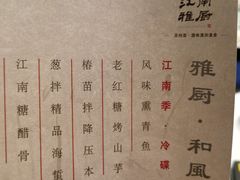 江南
雅厨
雅厨·和風
江南季·冷碟
风味熏青鱼
老红糖烤山芋
椿苗拌降压本
葱拌精品海蜇
江南糖醋骨